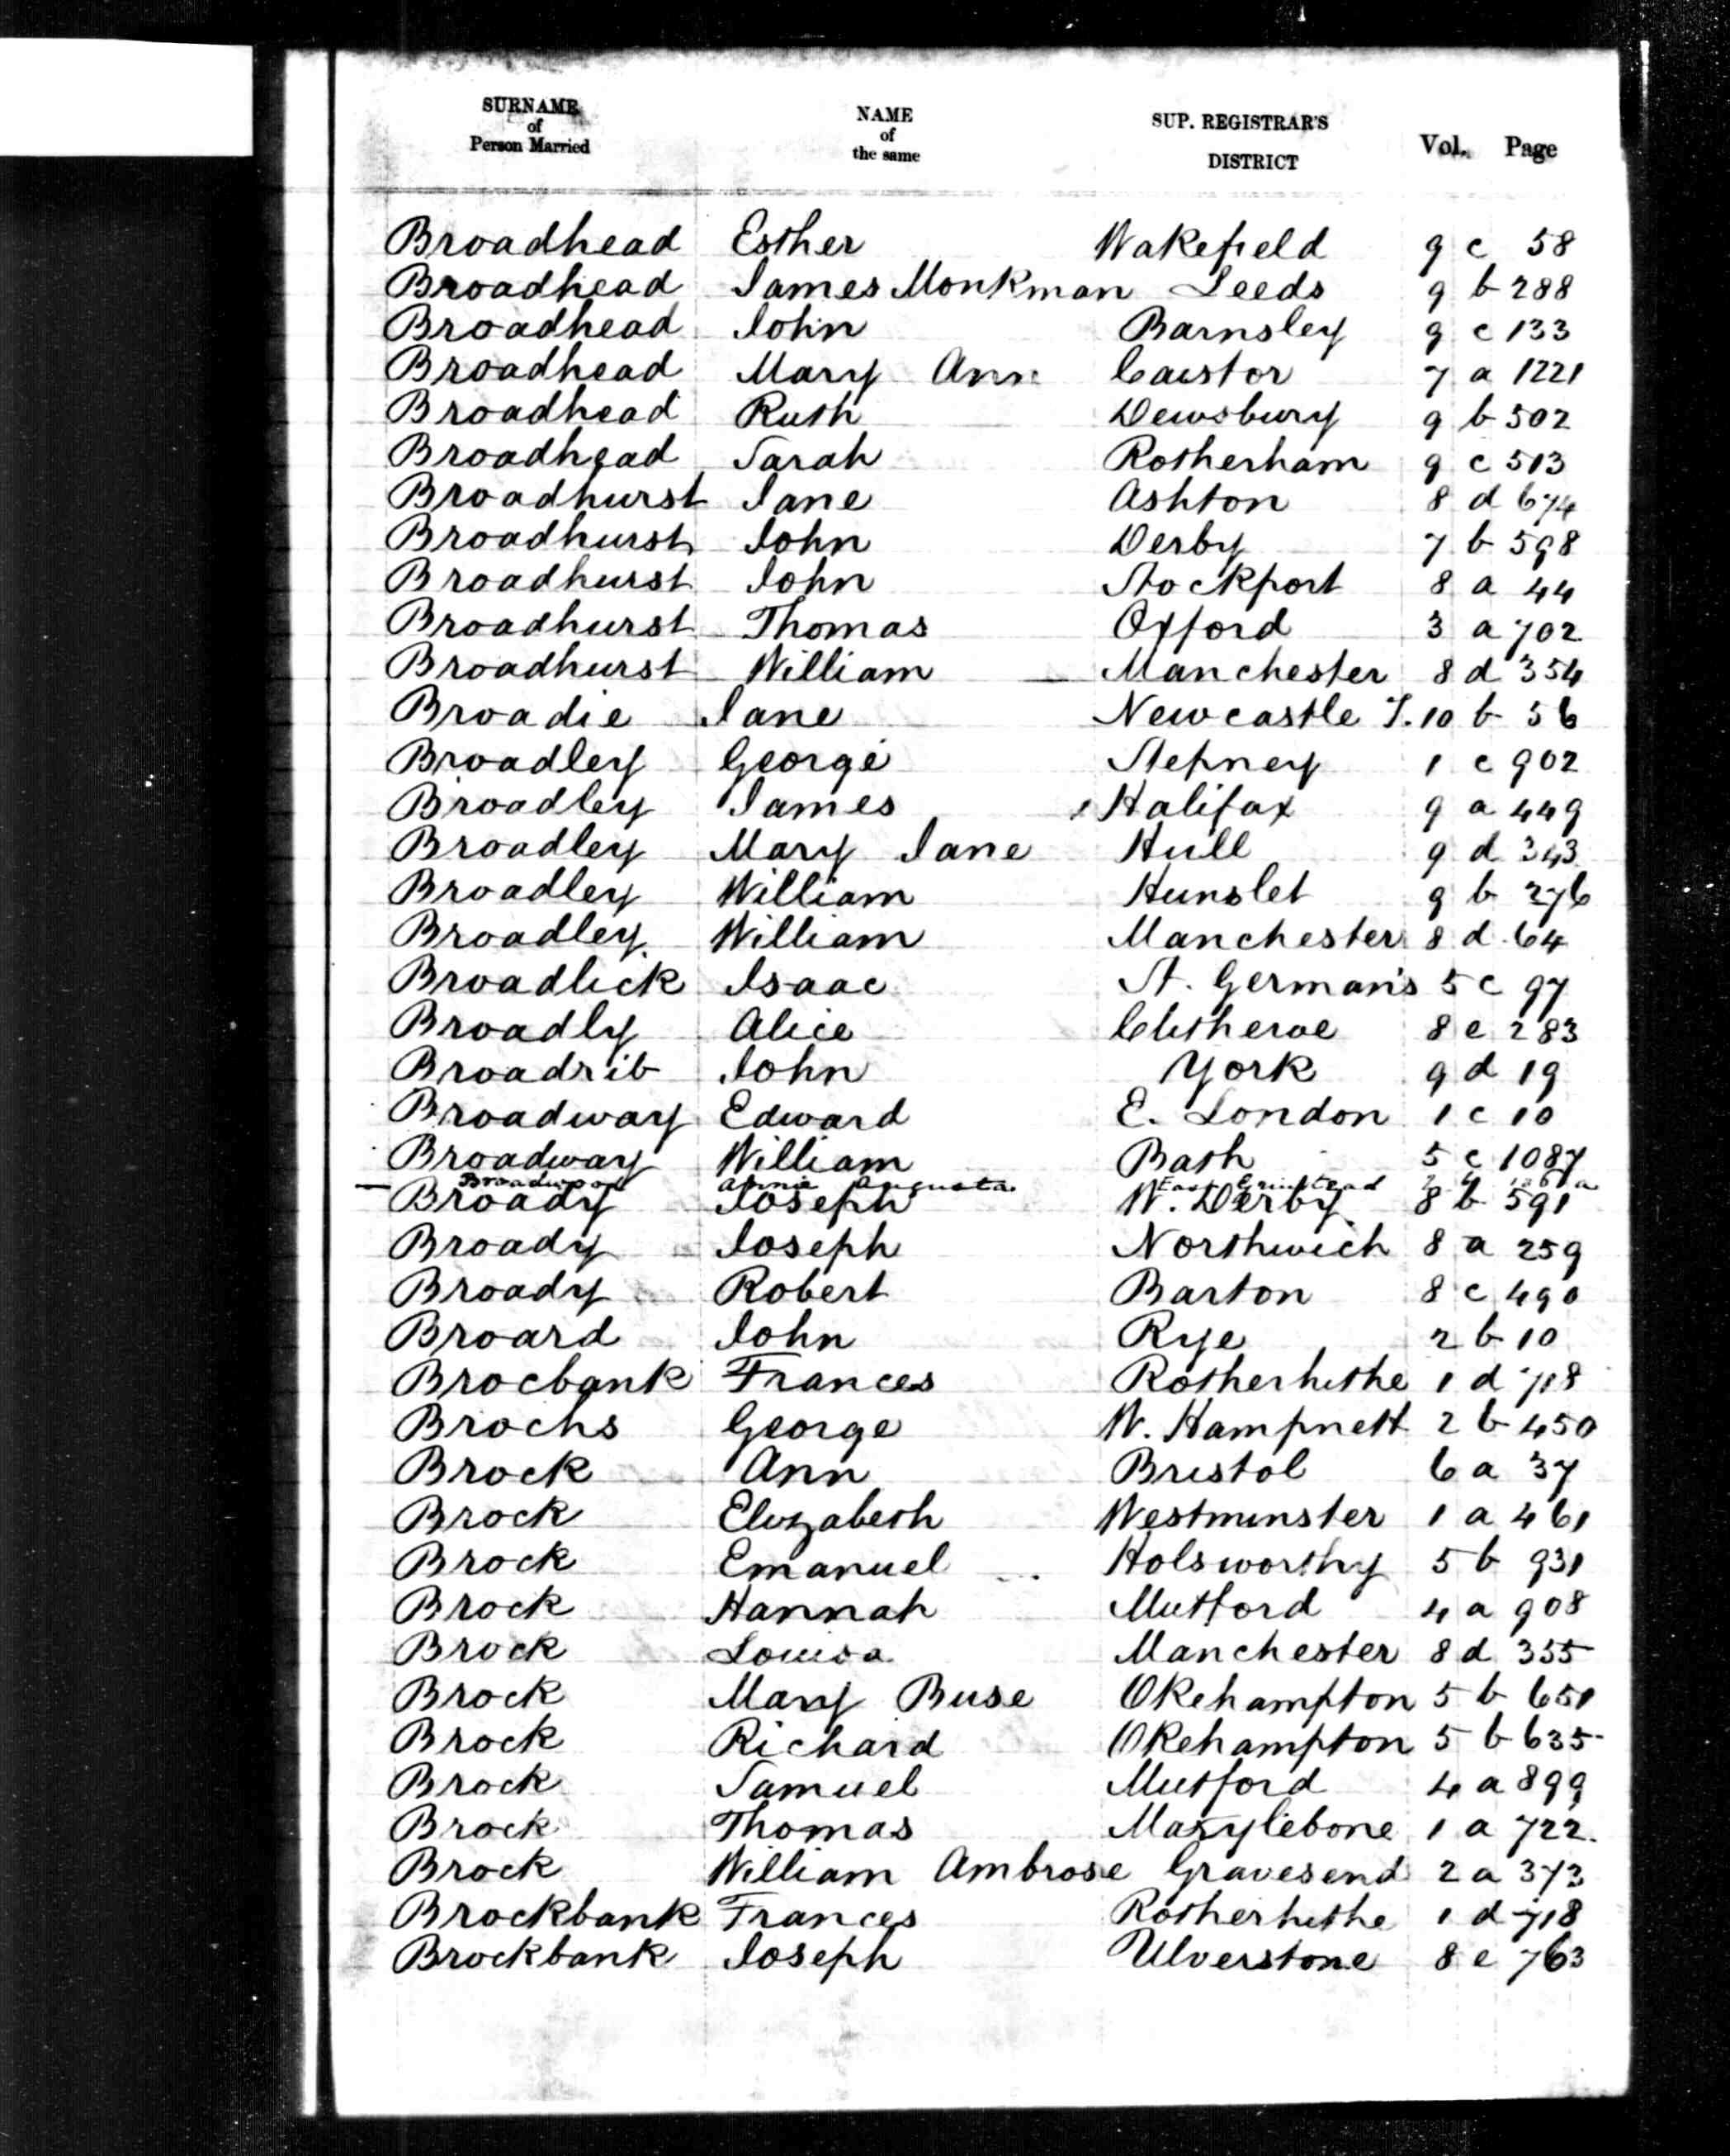 SURNAME of Person Married NAME of the same SUP. REGISTRAR'S DISTRICT Vol. Page
Broadhead Esther Wakefield 9 c 58
Broadhead James Monkman Leeds 9 b 288
Broadhead John Barnsley 9 c 133
Broadhead Mary Ann Caistor 7 a 1221
Broadhead Ruth Dewsbury 9 b 502
Broadhead Sarah Rotherham 9 c 513
Broadhurst Jane Ashton 8 d 674
Broadhurst John Derby 7 b 598
Broadhurst John Stockport 8 a 44
Broadhurst Thomas Oxford 3 a 702
Broadhurst William Manchester 8 d 354
Broadie Jane Newcastle T. 10 b 56
Broadley George Stepney 1 c 902
Broadley James Halifax 9 a 449
Broadley Mary Jane Hull 9 d 343
Broadley William Hunslet 9 b 276
Broadley William Manchester 8 d 64
Broadlick Isaac St. German's 5 c 97
Broadly Alice Clitheroe 8 e 283
Broadrib John York 9 d 19
Broadway Edward E. London 1 c 10
Broadway William Bath 5 c 1087
Broadwood Annie Augusta East Grinstead
Broady Joseph W. Derby 8 b 591
Broady Joseph Northwich 8 a 259
Broady Robert Barton 8 c 490
Broard John Rye 2 b 10
Brocbank Frances Rotherhithe 1 d 718
Brochs George W. Hampnett 2 b 450
Brock Ann Bristol 6 a 37
Brock Elizabeth Westminster 1 a 461
Brock Emanuel Holsworthy 5 b 931
Brock Hannah Mutford 4 a 908
Brock Louisa Manchester 8 d 355
Brock Mary Buse Okehampton 5 b 651
Brock Richard Okehampton 5 b 635
Brock Samuel Mutford 4 a 899
Brock Thomas Marylebone 1 a 722
Brock William Ambrose Gravesend 2 a 373
Brockbank Frances Rotherhithe 1 d 718
Brockbank Joseph Ulverstone 8 e 763